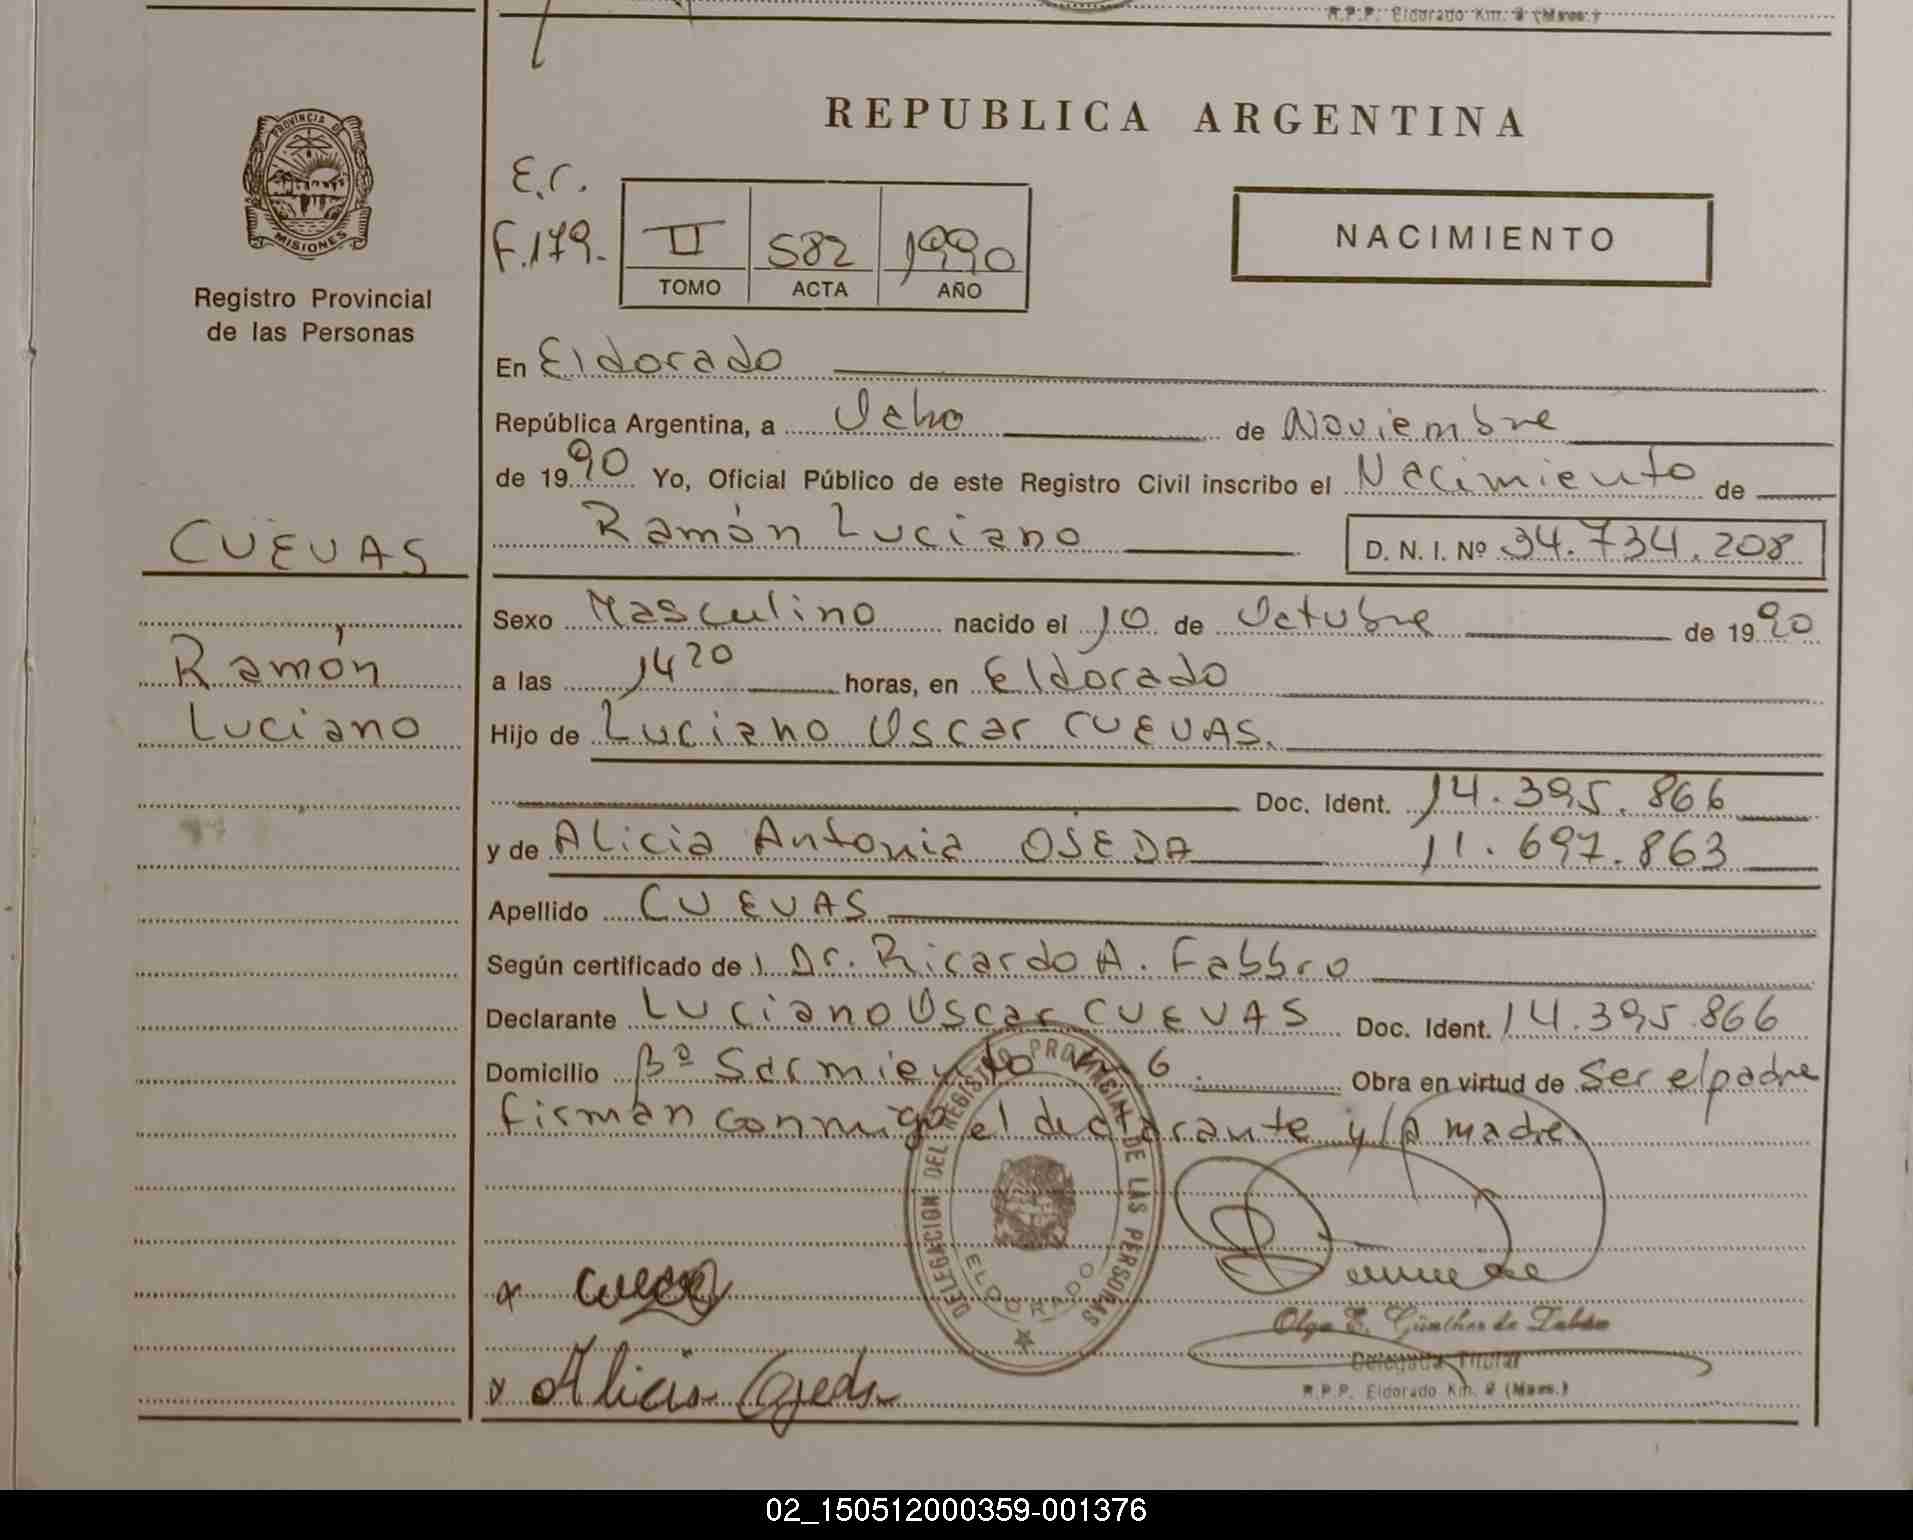 R.P.P. Eldorado Km. 9 (Mnes.)
PROVINCIA DE
MISIONES
Registro Provincial
de las Personas
REPUBLICA ARGENTINA
E.C.
F.179.
II 582 1990
TOMO ACTA AÑO
NACIMIENTO
En Eldorado
República Argentina, a Ocho de Noviembre
de 1990 Yo, Oficial Público de este Registro Civil inscribo el Nacimiento de
CUEVAS
Ramón Luciano D. N. I. Nº 34.734.208
Sexo Masculino nacido el 10 de Octubre de 1990
Ramón
a las 14 20 horas, en Eldorado
Luciano
Hijo de Luciano Oscar CUEVAS.
Doc. Ident. 14.395.866
y de Alicia Antonia OJEDA 11.697.863
Apellido CUEVAS
Según certificado de Dr. Ricardo A. Fabbro
Declarante Luciano Oscar CUEVAS Doc. Ident. 14.395.866
Domicilio Bº Sarmiento 6 Obra en virtud de Ser el padre
firman conmigo el declarante y la madre
DELEGACION DEL REGISTRO PROVINCIAL DE LAS PERSONAS
ELDORADO
x Cuevas
Olga E. Günther de
Delegada Titular
x Alicia Ojeda
R.P.P. Eldorado Km. 9 (Mnes.)
02_150512000359-001376